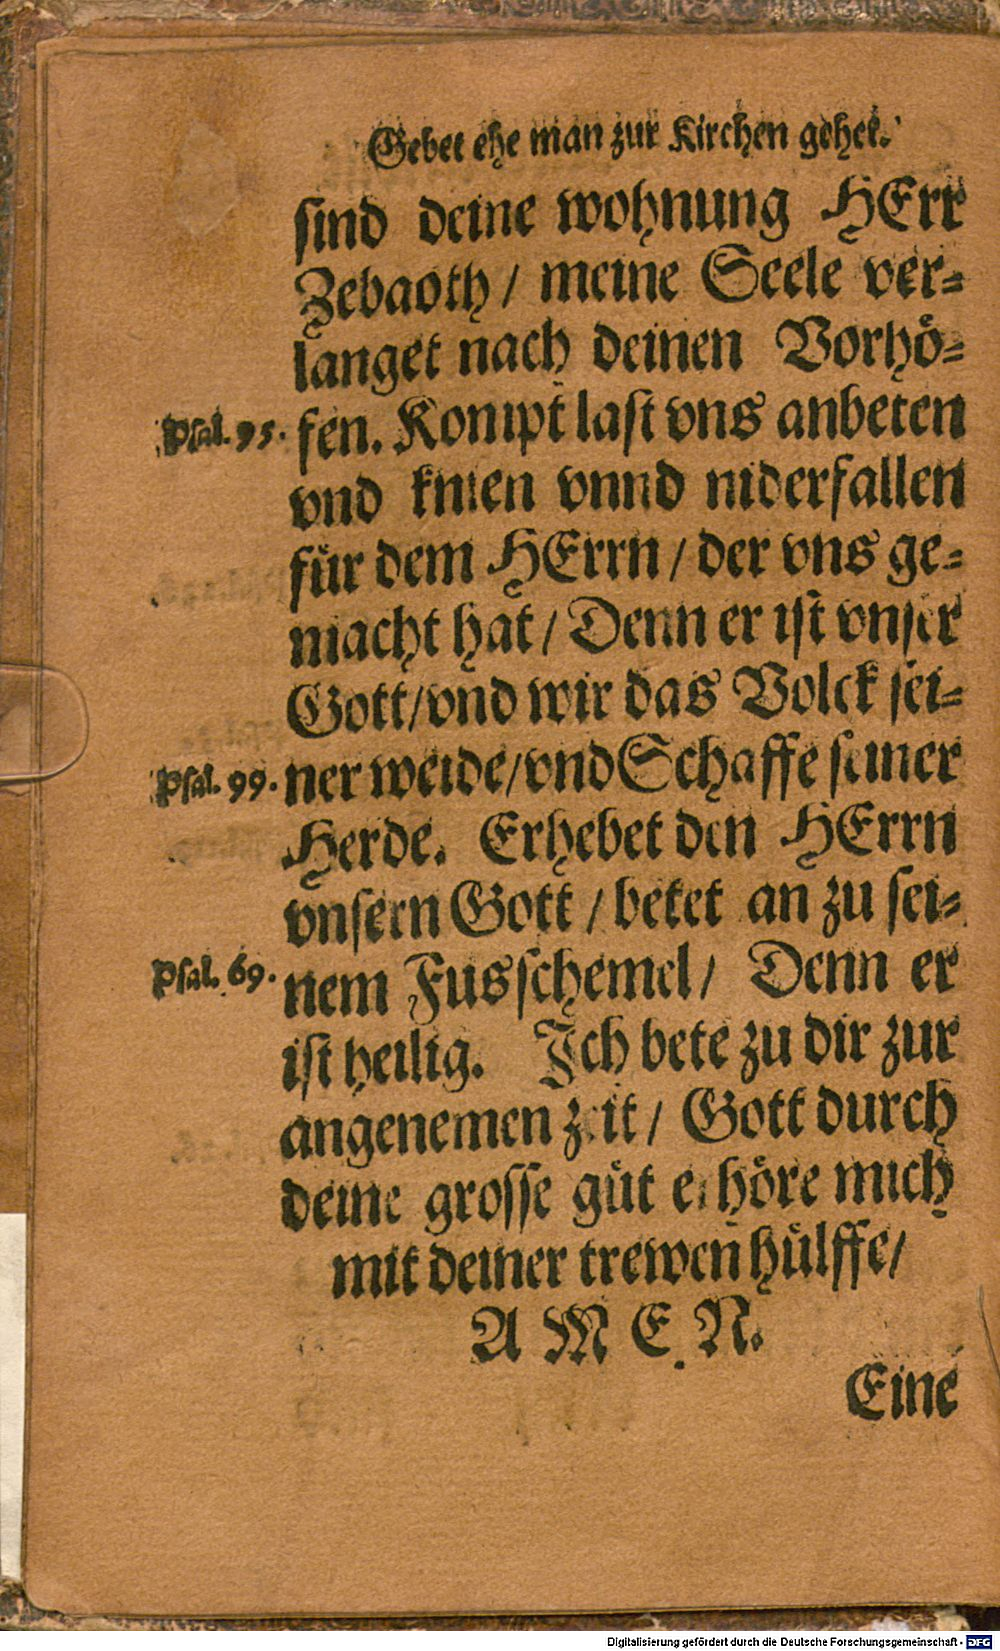 Gebet ehe man zur Kirchen gehet.
sind deine wohnung HErr
Zebaoth / meine Seele ver-
langet nach deinen Vorhö-
Psal. 95. fen. Kompt last vns anbeten
vnd knien vnnd niderfallen
für dem HErrn / der vns ge-
macht hat / Denn er ist vnser
Gott / vnd wir das Volck sei-
Psal. 99. ner weide / vnd Schaffe seiner
Herde. Erhebet den HErrn
vnsern Gott / betet an zu sei-
Psal. 69. nem Fusschemel / Denn er
ist heilig. Ich bete zu dir zur
angenemen zeit / Gott durch
deine grosse güt erhöre mich
mit deiner trewen hülffe /
A M E N.
Eine
Digitalisierung gefördert durch die Deutsche Forschungsgemeinschaft - DFG